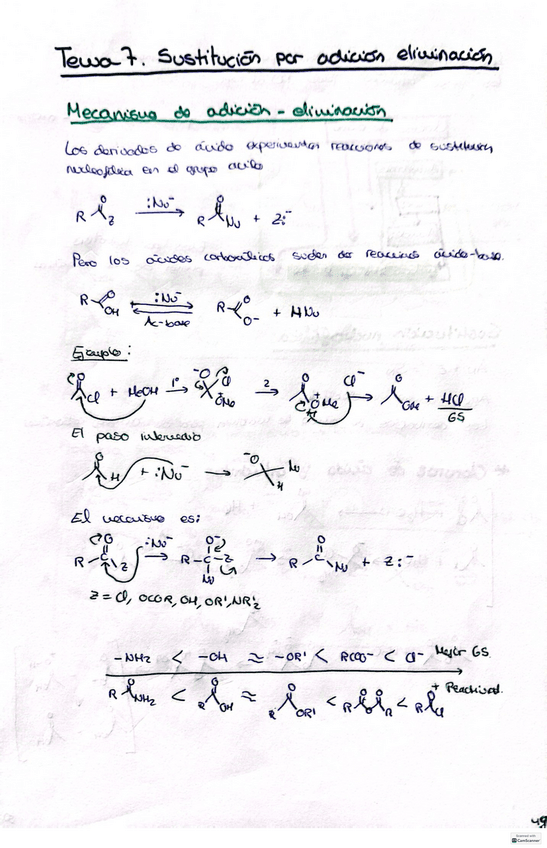 Tema 7. Sustitución por adición eliminación
Mecanismo de adición - eliminación
Los derivados de ácido experimentan reacciones de sustitución
nucleofílica en el grupo acilo
R O Z :Nu⁻ → R O Nu + Z:⁻
Pero los ácidos carboxílicos suelen dar reacciones ácido-base.
R O OH :Nu⁻ ⇌ Ac-base R O O⁻ + HNu
Ejemplo:
O Cl + MeOH 1º → ⁻O Cl OMe 2 → O OMe Cl⁻ → O OMe + HCl
GS
El paso intermedio
O H + :Nu⁻ → ⁻O Nu H
El mecanismo es:
R-C O Z :Nu⁻ → R-C-Z O⁻ Nu → R O Nu + Z:⁻
Z = Cl, OCOR, OH, OR', NR'₂
-NH₂ < -OH ≈ -OR' < RCOO⁻ < Cl⁻ Mejor GS.
+ Reactividad.
R O NH₂ < R O OH ≈ R O OR' < R O O O R < R O Cl
49
CamScanner